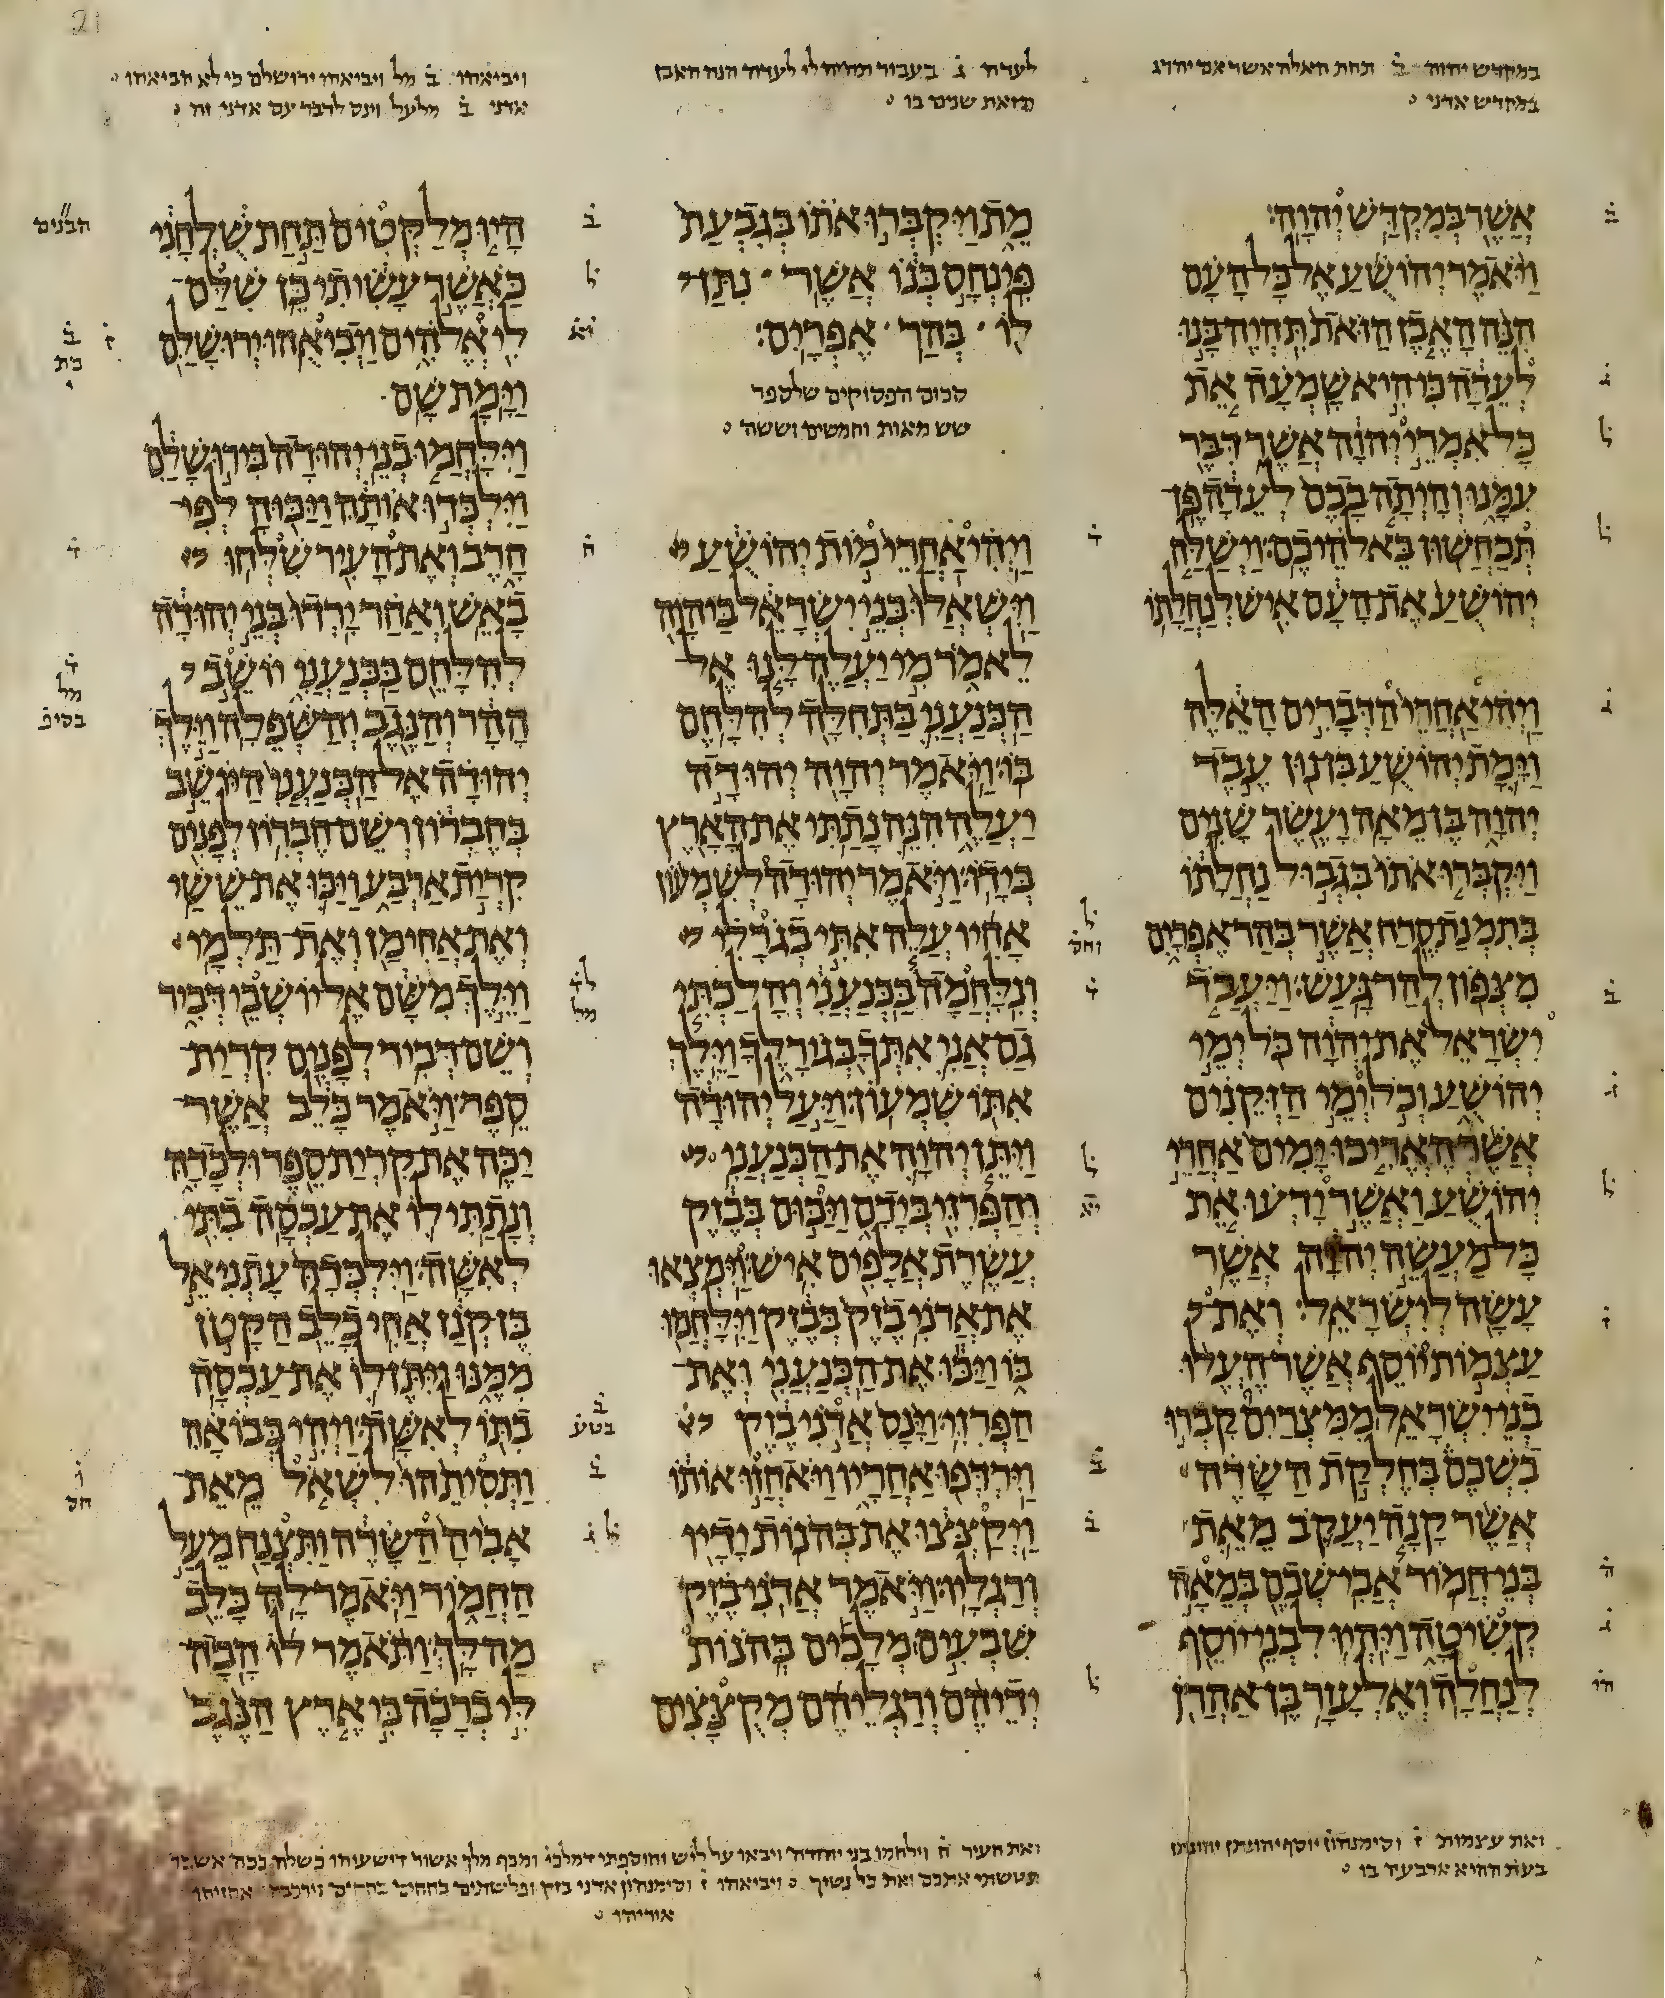 במקדש יהוה ב תחת האלה אשר אם יהרג
במקדש אדני
לעדה ג בעבור תהיה לי לעדה הנה האבן
הזאת שנים בו
ויביאהו ב מל ויביאהו ירושלם כי לא הביאהו
אדני ב מלעל וינס לדבר עם אדני זה
אשר במקדש יהוה׃
ויאמר יהושע אל כל העם
הנה האבן הזאת תהיה בנו
לעדה כי היא שמעה את
כל אמרי יהוה אשר דבר
עמנו והיתה בכם לעדה פן
תכחשון באלהיכם׃ וישלח
יהושע את העם איש לנחלתו
ויהי אחרי הדברים האלה
וימת יהושע בן נון עבד
יהוה בן מאה ועשר שנים
ויקברו אתו בגבול נחלתו
בתמנת סרח אשר בהר אפרים
מצפון להר געש׃ ויעבד
ישראל את יהוה כל ימי
יהושע וכל ימי הזקנים
אשר האריכו ימים אחרי
יהושע ואשר ידעו את
כל מעשה יהוה אשר
עשה לישראל׃ ואת
עצמות יוסף אשר העלו
בני ישראל ממצרים קברו
בשכם בחלקת השדה
אשר קנה יעקב מאת
בני חמור אבי שכם במאה
קשיטה ויהיו לבני יוסף
לנחלה׃ ואלעזר בן אהרן
מת ויקברו אתו בגבעת
פינחס בנו אשר נתן
לו בהר אפרים׃
סכום הפסוקים שלספר
שש מאות וחמשים וששה
ויהי אחרי מות יהושע
וישאלו בני ישראל ביהוה
לאמר מי יעלה לנו אל
הכנעני בתחלה להלחם
בו׃ ויאמר יהוה יהודה
יעלה הנה נתתי את הארץ
בידו׃ ויאמר יהודה לשמעון
אחיו עלה אתי בגרלי
ונלחמה בכנעני והלכתי
גם אני אתך בגורלך וילך
אתו שמעון׃ ויעל יהודה
ויתן יהוה את הכנעני
והפרזי בידם ויכום בבזק
עשרת אלפים איש׃ וימצאו
את אדני בזק בבזק וילחמו
בו ויכו את הכנעני ואת
הפרזי׃ וינס אדני בזק
וירדפו אחריו ויאחזו אותו
ויקצצו את בהנות ידיו
ורגליו׃ ויאמר אדני בזק
שבעים מלכים בהנות
ידיהם ורגליהם מקצצים
היו מלקטים תחת שלחני
כאשר עשיתי כן שלם
לי אלהים ויביאהו ירושלם
וימת שם׃
וילחמו בני יהודה בירושלם
וילכדו אותה ויכוה לפי
חרב ואת העיר שלחו
באש׃ ואחר ירדו בני יהודה
להלחם בכנעני יושב
ההר והנגב והשפלה׃ וילך
יהודה אל הכנעני היושב
בחברון ושם חברון לפנים
קרית ארבע ויכו את ששי
ואת אחימן ואת תלמי׃
וילך משם אל יושבי דביר
ושם דביר לפנים קרית
ספר׃ ויאמר כלב אשר
יכה את קרית ספר ולכדה
ונתתי לו את עכסה בתי
לאשה׃ וילכדה עתניאל
בן קנז אחי כלב הקטן
ממנו ויתן לו את עכסה
בתו לאשה׃ ויהי בבואה
ותסיתהו לשאל מאת
אביה השדה ותצנח מעל
החמור ויאמר לה כלב
מה לך׃ ותאמר לו הבה
לי ברכה כי ארץ הנגב
ואת עצמות ז וסימנהון יוסף יהונתן יהונתן
בעת ההיא ארבעה בו
ואת העיר ח וילחמו בני יהודה ויבאו על ליש
אוריהו